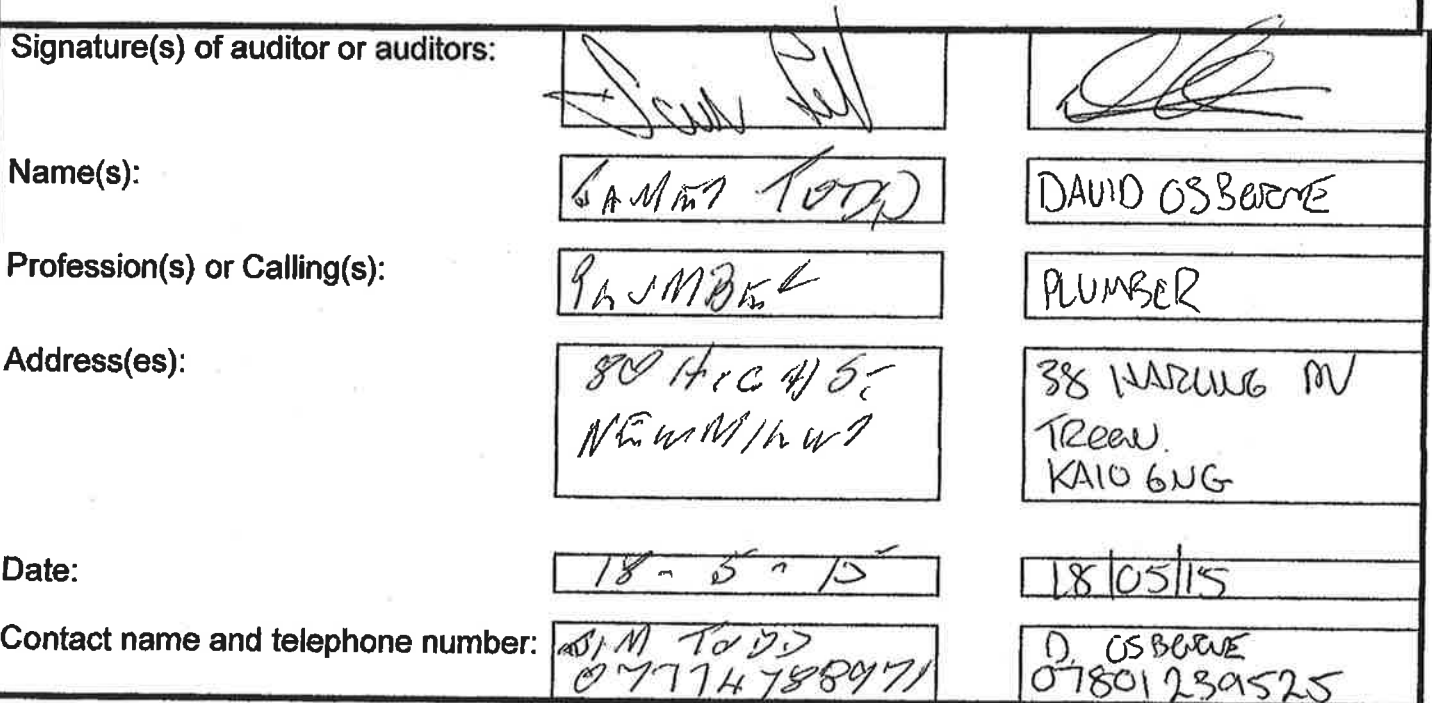 Signature(s) of auditor or auditors:
Name(s): JAMES TODD DAVID OSBORNE
Profession(s) or Calling(s): PLUMBER PLUMBER
Address(es): 80 HIGH ST 38 HARLING
NEWMILNS TROON.
KA10 6NG
Date: 18-5-15 18/05/15
Contact name and telephone number: JIM TODD D. OSBORNE
07714788971 07801239525